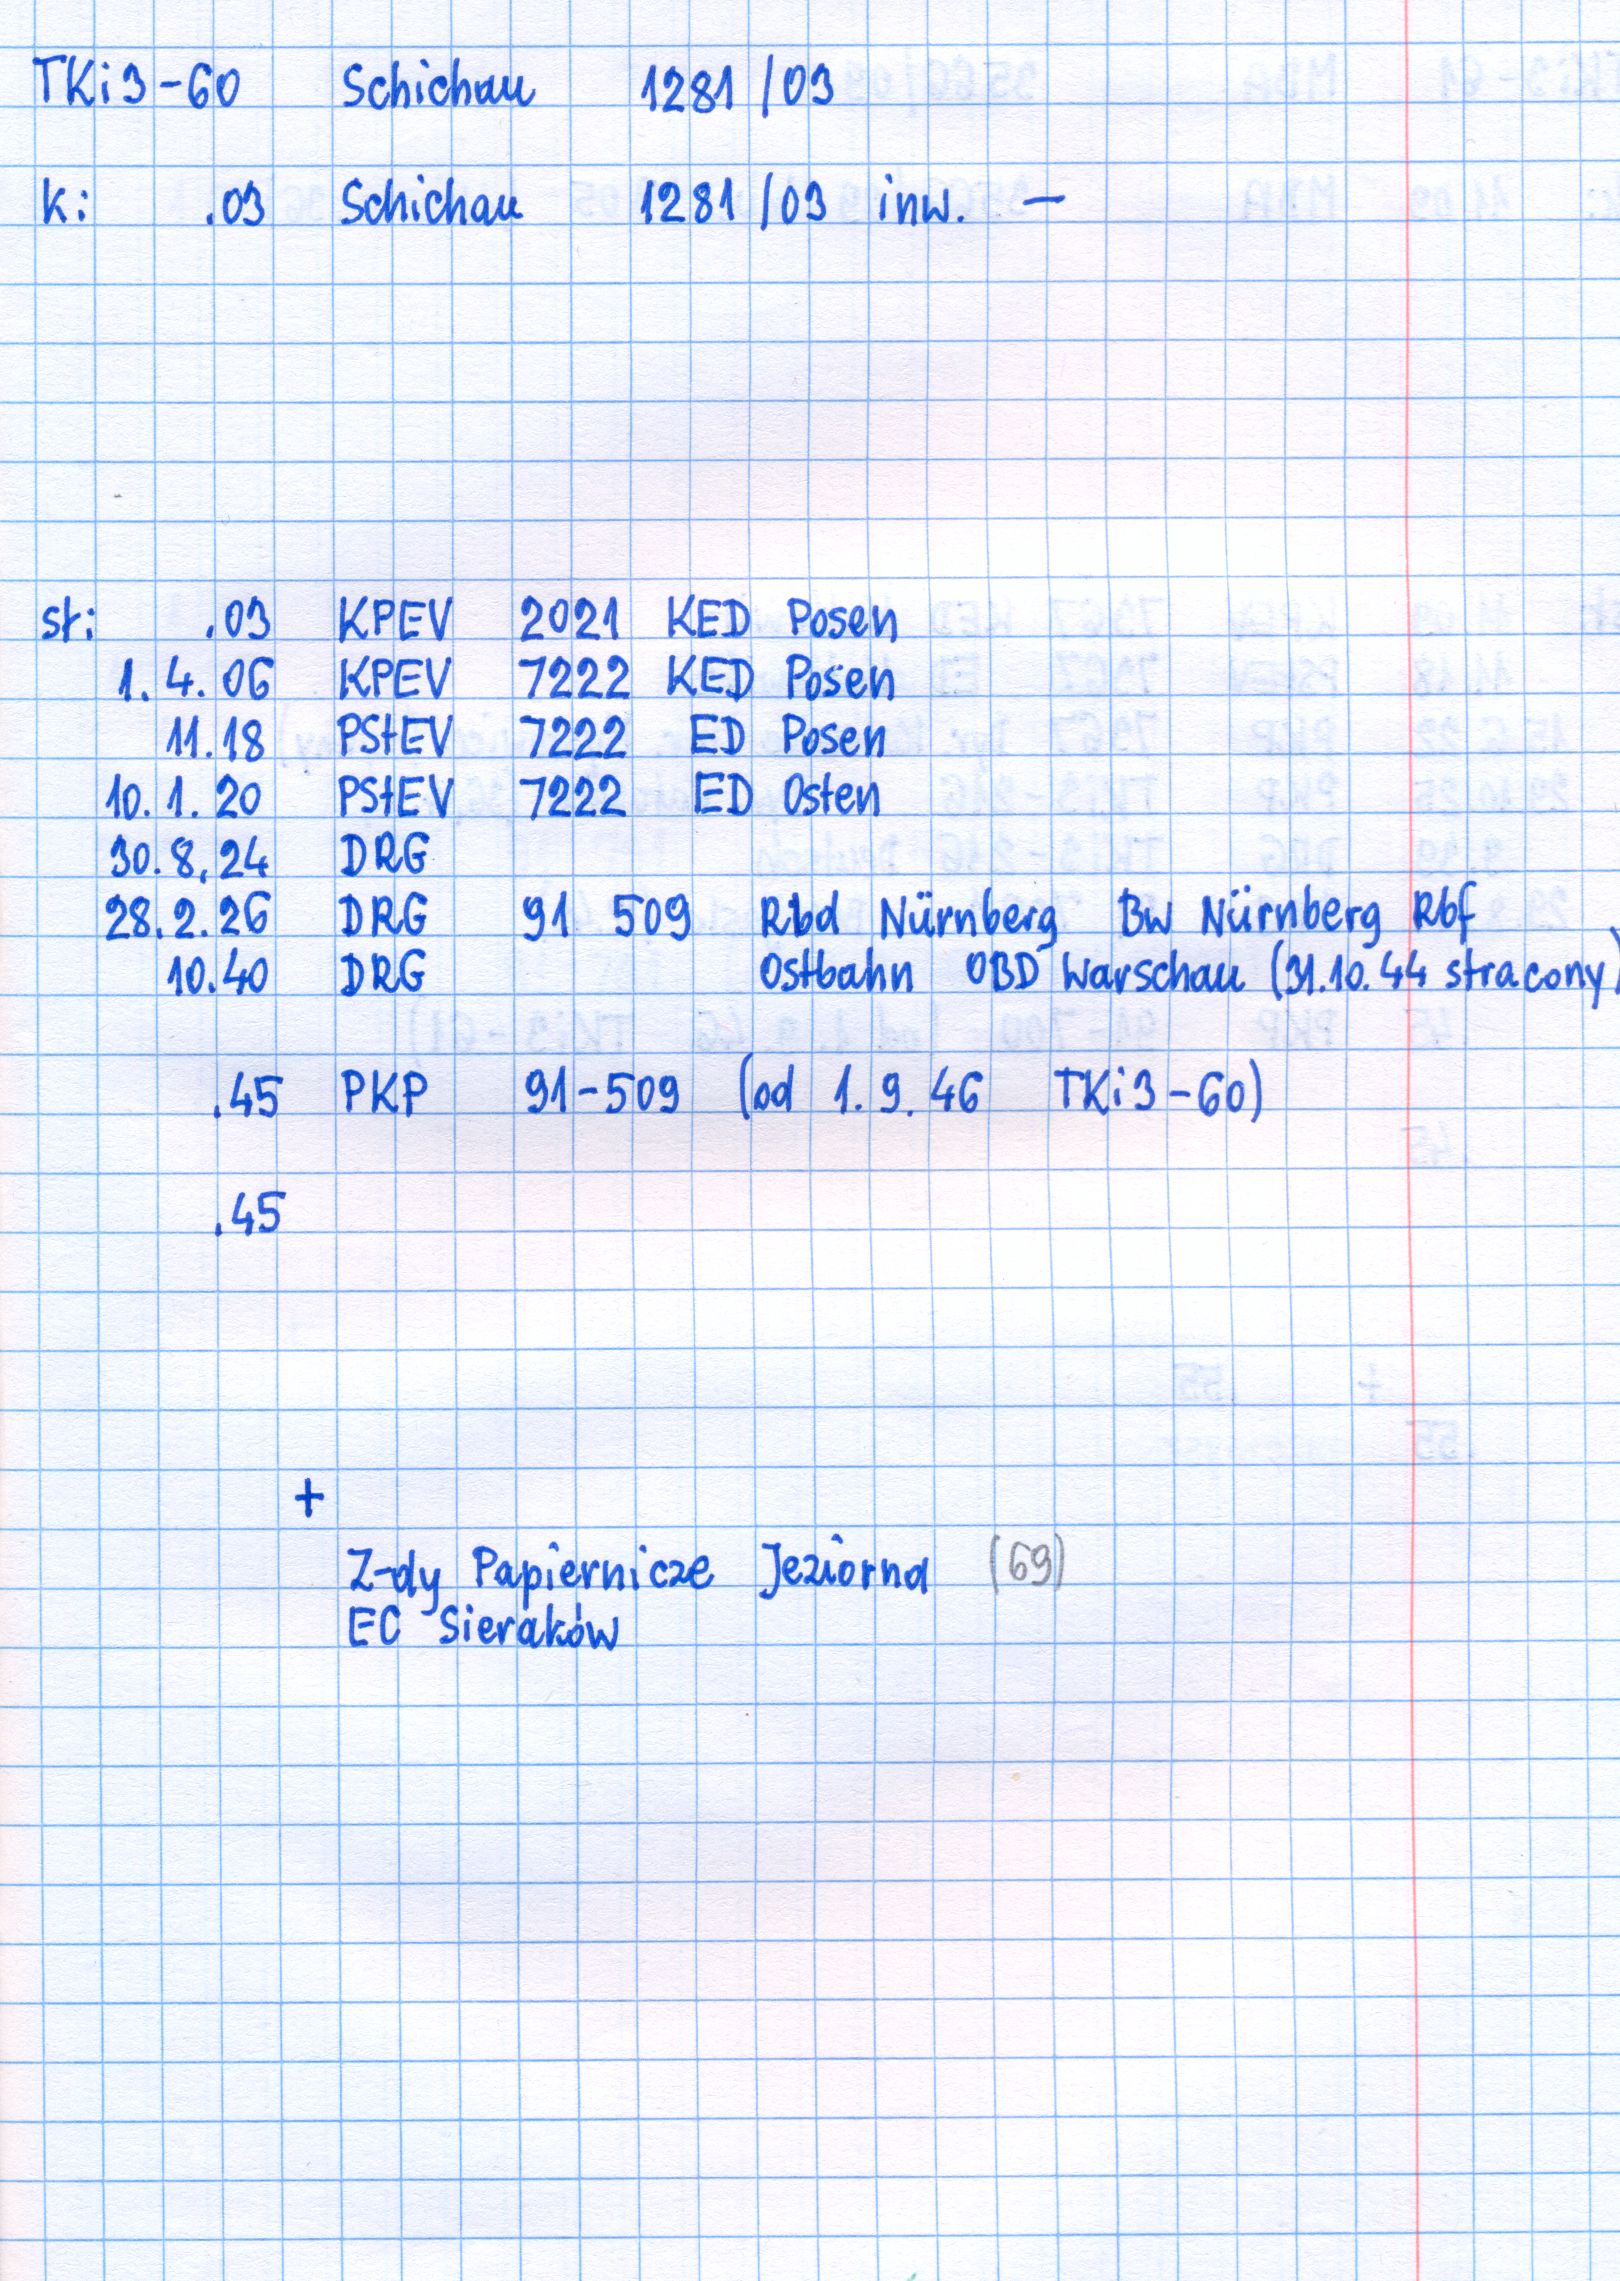 TKi3-60 Schichau 1281/03
k: .03 Schichau 1281/03 inw. —
st: .03 KPEV 2021 KED Posen
1.4.06 KPEV 7222 KED Posen
11.18 PStEV 7222 ED Posen
10.1.20 PStEV 7222 ED Osten
30.8.24 DRG
28.2.26 DRG 91 509 Rbd Nürnberg Bw Nürnberg Rbf
10.40 DRG Ostbahn OBD Warschau (31.10.44 stracony)
.45 PKP 91-509 (od 1.9.46 TKi3-60)
.45
+
Z-dy Papiernicze Jeziorna (69)
EC Sieraków